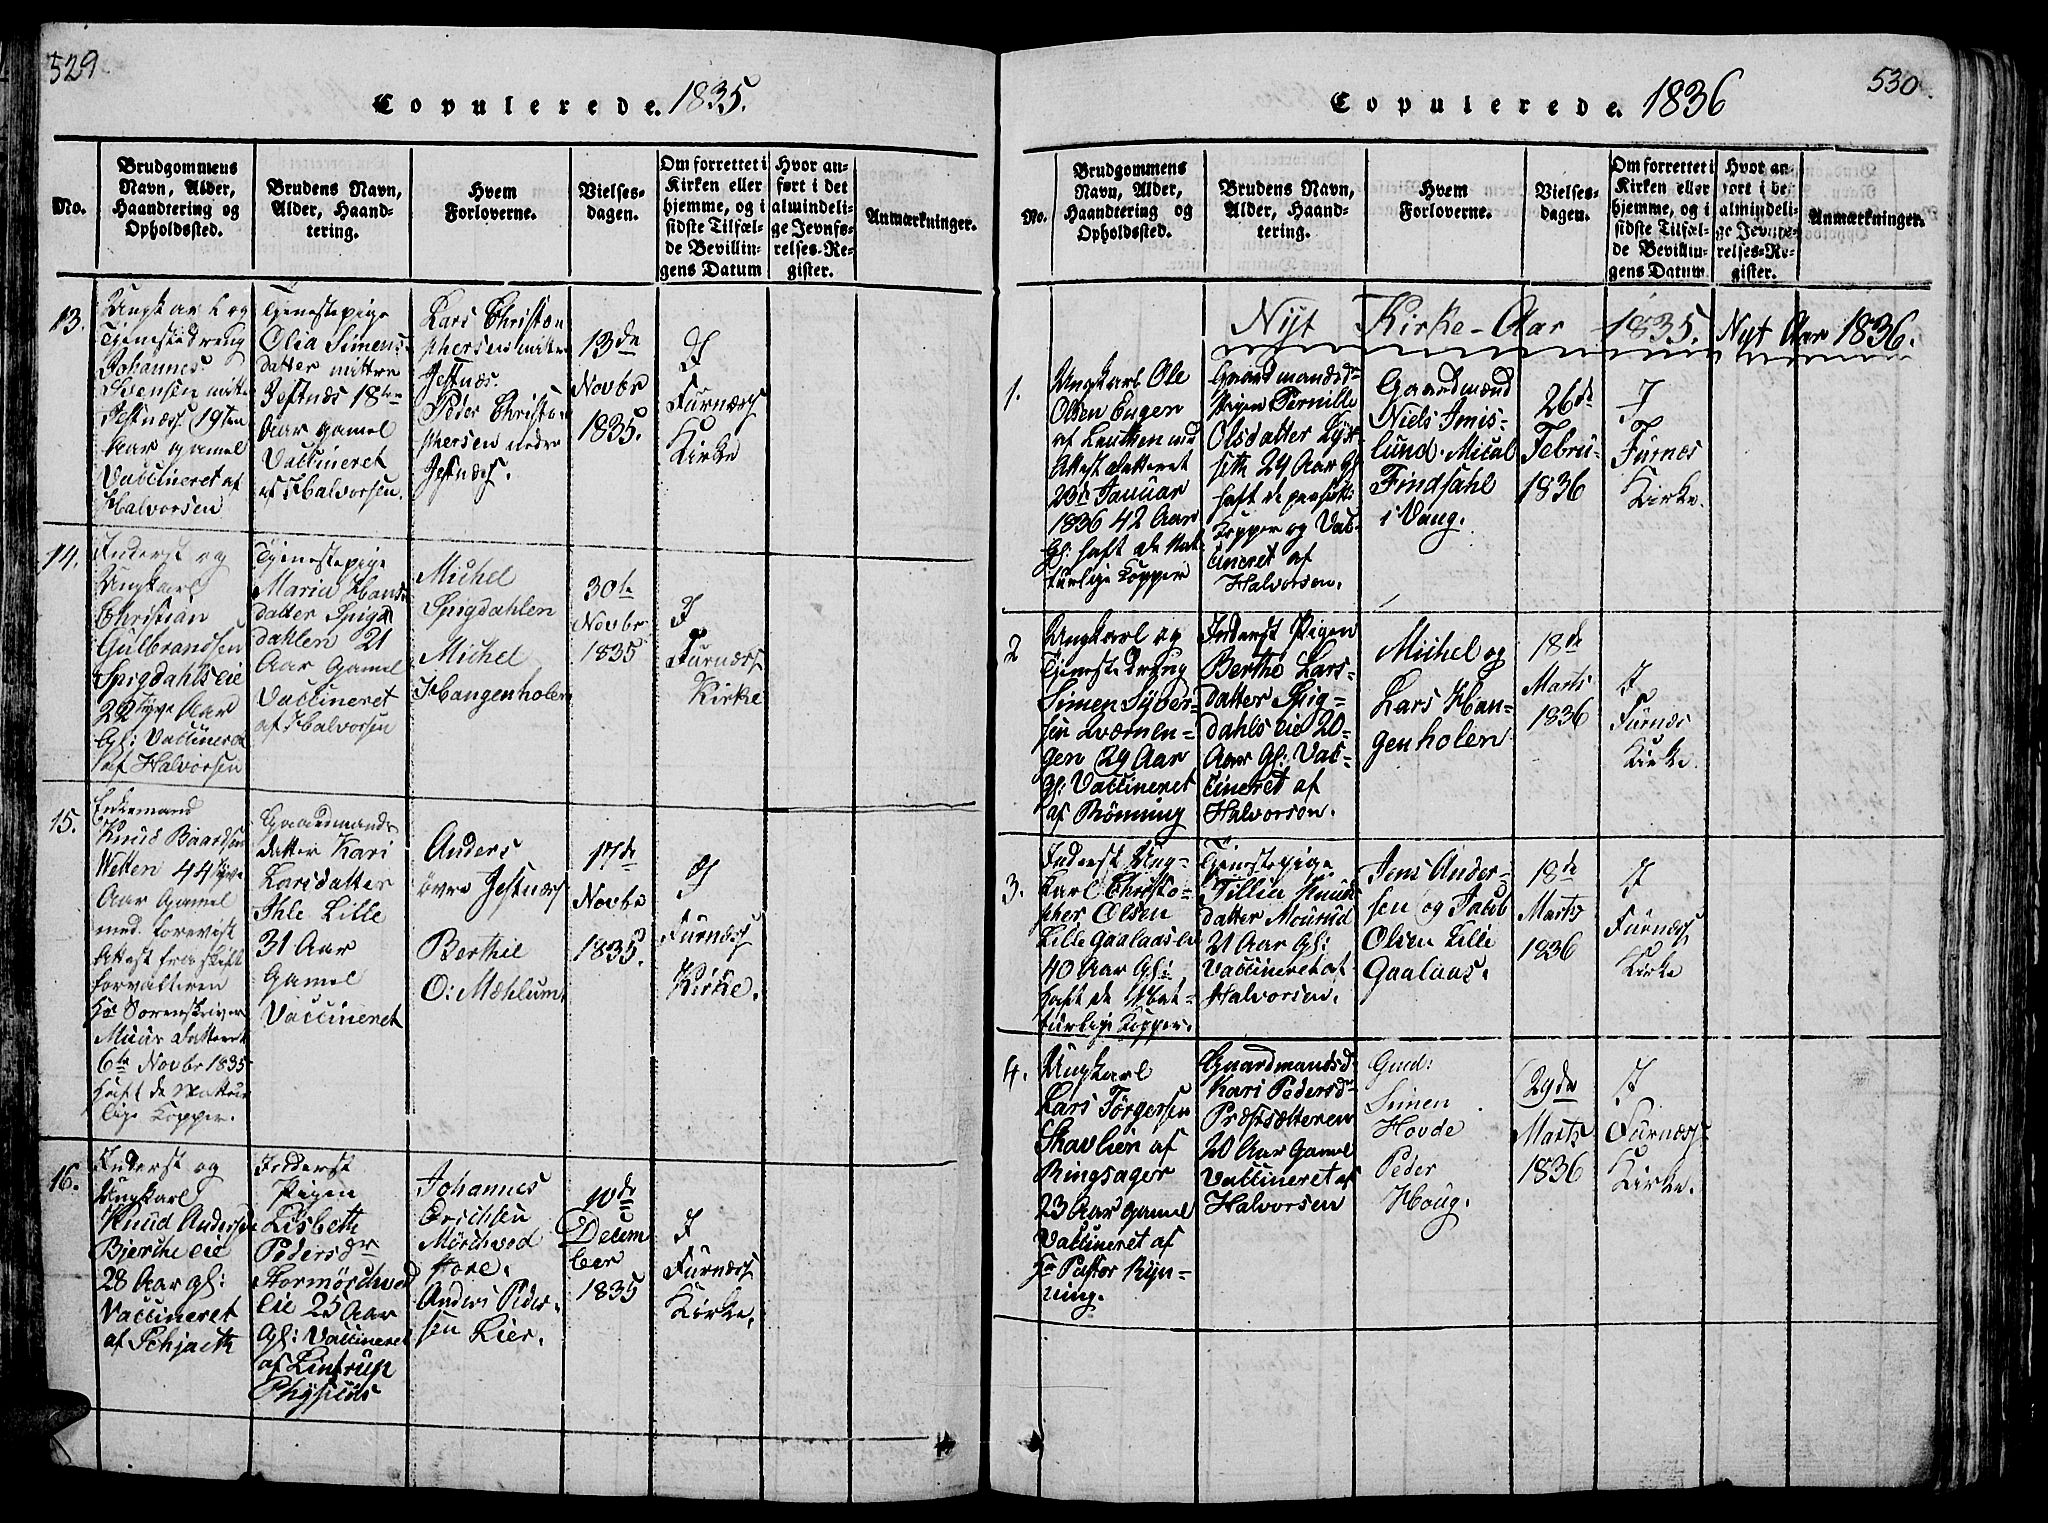 529
Copulerede. 1835.
No.
Brudgommens
Navn, Alder,
Haandtering og
Opholdssted.
Brudens Navn,
Alder, Haand-
tering.
Hvem
Forloverne.
Vielses-
dagen.
Om forrettet i
Kirken eller
hjemme, og i
sidste Tilfæl-
de Bevillin-
gens Datum
Hvor an-
ført i det
almindeli-
ge Jevnfø-
relses-Re-
gister.
Anmærkninger.
13.
Ungkarl og
Tjenestedreng
Johannes
Sørensen mitt
Jestnæs 19ten
Aar gamel
Vaccineret af
Halvorsen
Tjenestepige
Olia Simens-
datter mittre
Jestnæs 18ten
Aar gamel
Vaccineret
af Halvorsen.
Lars Christon
phersen mittre
Jestnæs.
Peder Christon
phersen nedre
Jestnæs.
13de
Novbr
1835.
I
Furnæss
Kirke
14.
Inderst og
Ungkarl
Christian
Gulbrandsen
Spigdahlseie
22 tyve Aar
Gl: Vaccineret
af Halvorsen
Tjenestepige
Maria Hans
datter Spigd
dahlen 21
Aar gamel
Vaccineret
af Halvorsen
Michel
Spigdahlen
Michel
Hangenholen
30te
Novbr
1835
I
Furnæss
Kirke
15.
Enkemand
Knud Baardsen
Wetten 44 tyve
Aar gamel
med forevist
Attest fra skift
forvalteren
Hr Sorenskriver
Muus datteret
6te Novbr 1835
Haft de Nattur
lige Kopper.
Gaardmands
datter Kari
Larsdatter
Ihle Lille
31 Aar
Gamel
Vaccineret
Anders
övre Jestnæs
Berthil
O: Mæhlum
17de
Novbr
1835.
I
Furnæss
Kirke.
16.
Inderst og
Ungkarl
Knud Anderse
Bjerche eie
28 Aar gl:
Vaccineret
af Schjøeth
Inderst
Pigen
Lisbeth
Pedersdr
Stormörchved
Eie 25 Aar
Gl: Vaccineret
af Lintrup
Physicus
Johannes
Erichsen
Mörchved
store.
Anders Peder-
sen Lier.
10de
Decem
ber
1835
I
Furnæss
Kirke.
530
Copulerede. 1836
No.
Brudgommens
Navn, Alder,
Haandtering og
Opholdssted.
Brudens Navn,
Alder, Haand-
tering.
Hvem
Forloverne.
Vielses-
dagen.
Om forrettet i
Kirken eller
hjemme, og i
sidste Tilfæl-
de Bevillin-
gens Datum
Hvor an-
ført i det
almindeli-
ge Jevnfø-
relses-Re-
gister.
Anmærkninger.
Nyt Kirke-Aar 1835. Nyt Aar 1836.
1.
Ungkarl Ole
Olsen Eugen
af Leuthen med
Attest datteret
23de Januar
1836 42 Aar
Gl: haft de Nat
turlige Kopper
Gaardmandsd
Pigen Pernille
Olsdatter Lyr-
seth 29 Aar Gl
haft de
Kopper og Vac
cineret af
Halvorsen.
Gaardmænd
Niels Imis-
lund. Mical
Findsahl
i Vang.
26de
Febru-
1836
I
Furnæs
Kirke.
2
Ungkarl og
Tjenestedreng
Simen Syver-
sen Qværnen-
gen 29 Aar
gl: Vaccineret
af Rönning
Inderst Pigen
Berthe Lars-
datter Spig-
dahls eie 20-
Aar Gl: Vac-
cineret af
Halvorsen.
Michel og
Lars Han-
genholen
18de
Marts
1836
I
Furnæs
Kirke.
3.
Inderst Ung-
karl Christo-
pher Olsen
Lille Gaalaas eie
40 Aar Gl:
Haft de Nat-
turlige Kopper.
Tjenestepige
Tillia Knuds
datter Mourud
21 Aar Gl:
vaccineret af
Halvorsen.
Jens Ander-
sen og Jacob
Olsen Lille
Gaalaas.
18de
Marts
1836
I
Furnæss
Kirke
4.
Ungkarl
Lars Törgersen
Skavlien af
Ringsager
23 Aar gamel
Vaccineret af
Hr Pastor Ryn-
ning.
Gaardmandsd
Kari Pedersdr
Præstsætteren
20 Aar Gamel
Vaccineret af
Halvorsen
Gmd:
Simen
Hovde
Peder
Houg.
29de
Marts
1836
I
Furnæss
Kirke.